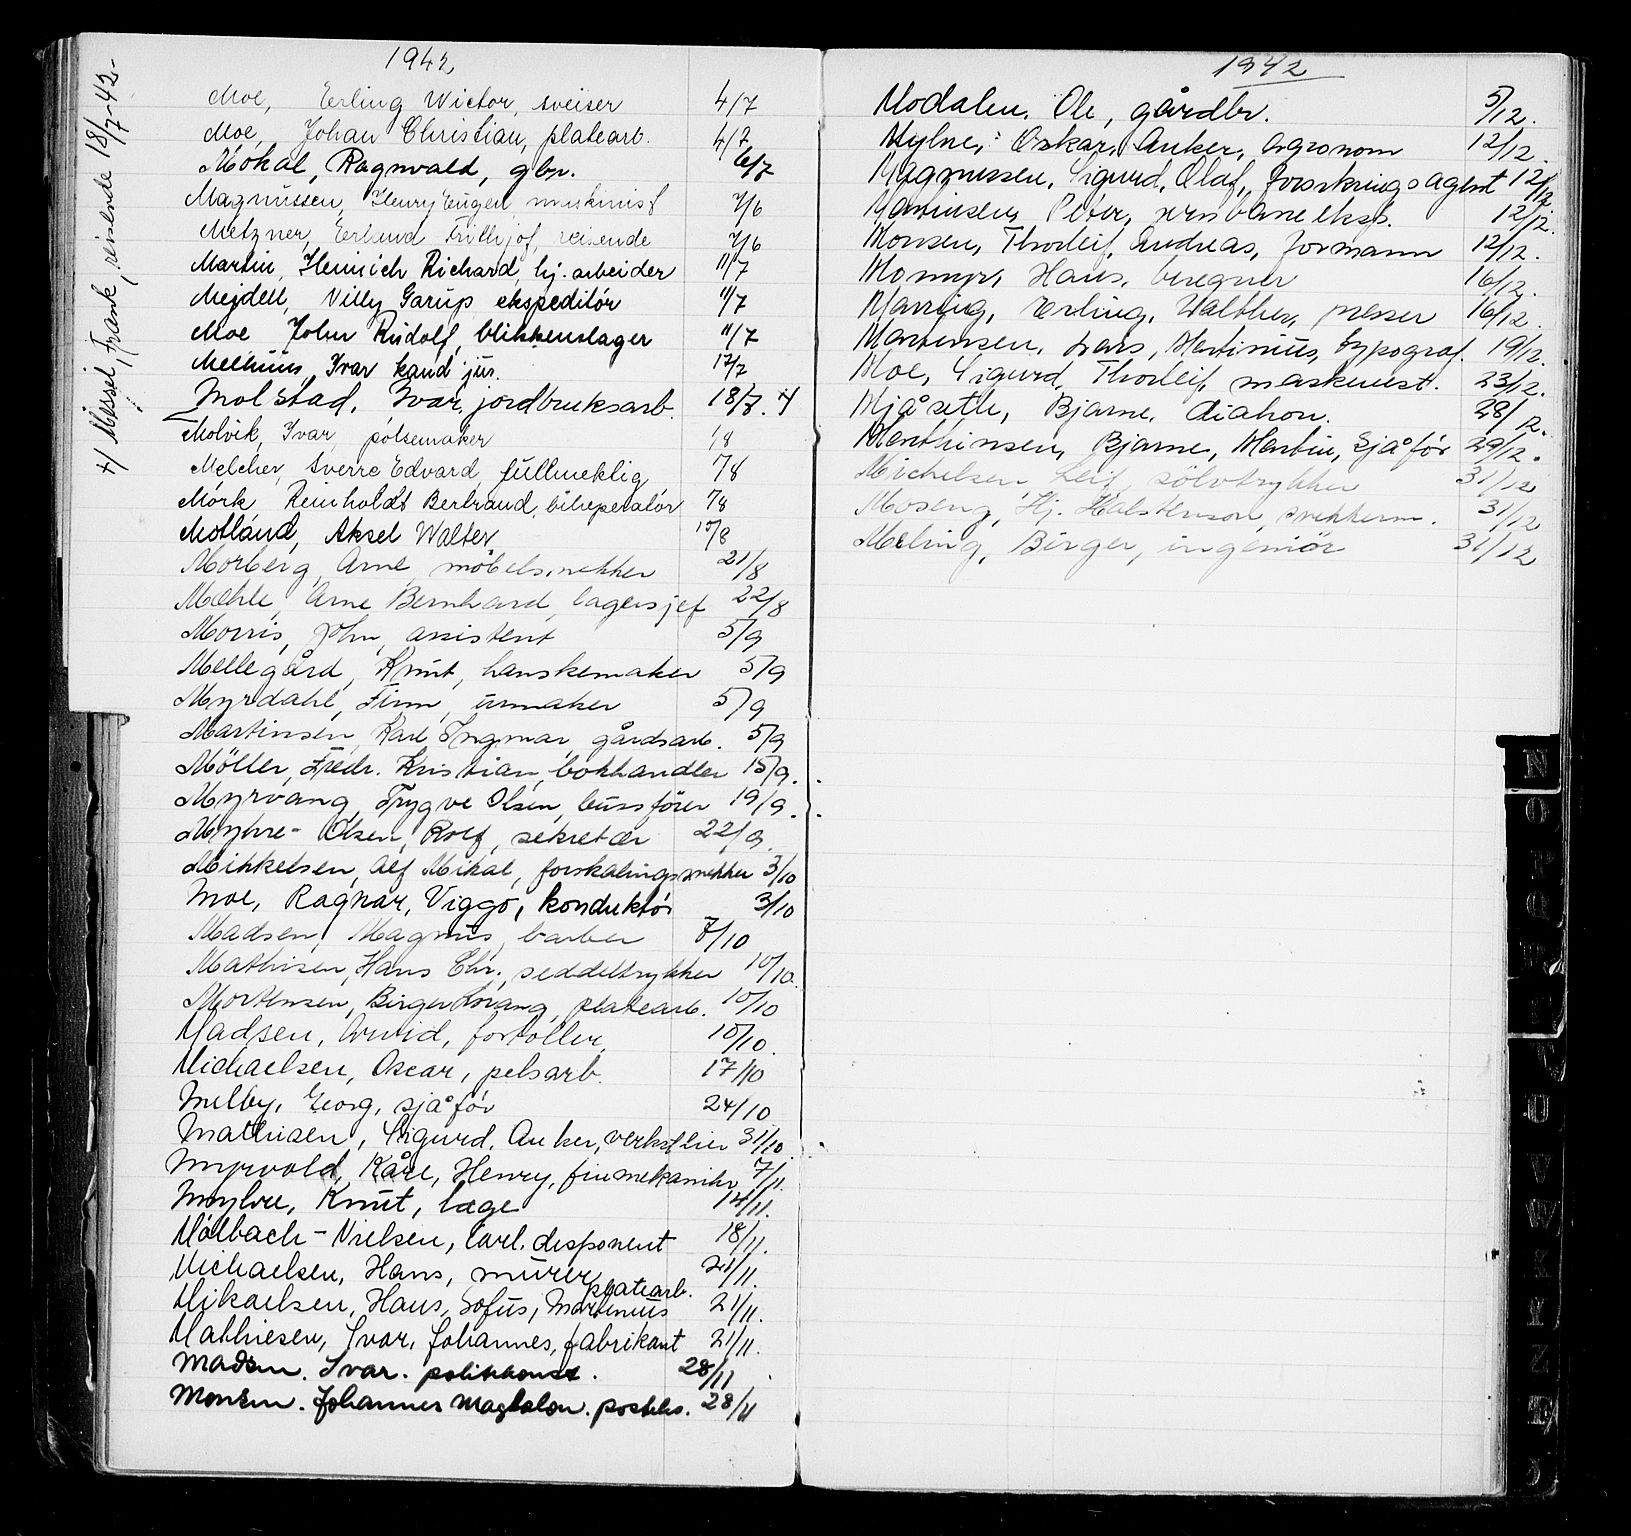 1942
Moe, Erling Wictor, sveiser 4/7
Moe, Johan Christian, platearb. 4/7
Mokal, Ragnvald, gbr. 6/7
Magnussen, Henry Eugen, maskinist 7/6
Metzner, Erland Fridtjof, reisende 7/6
Martin, Heinrich Richard, hj. arbeider 11/7
Mejdell, Villy Garup ekspeditör 11/7
Moe John Rudolf, blikkenslager 11/7
Melhuus, Ivar kand jur. 17/7
Molstad, Ivar, jordbruksarb. 18/7. +/
Molvik, Ivar, pölsemaker 1/8
Melcher, Sverre Edvard, fullmektig 7/8
Mörk, Reinholdt Bertrand, bilreperatör 7/8
Motland, Aksel Walter 15/8
Morberg, Arne, möbelsnekker 21/8
Mæhle, Arne Bernhard, lagersjef 22/8
Morris, John, assistent 5/9
Mellegård, Knut, hanskemaker 5/9
Myrdahl, Finn, urmaker 5/9
Martinsen, Karl Ingmar, gårdsarb. 5/9
Möller, Fredr. Kristian, bokhandler 15/9.
Myrvang, Trygve Olsen, bussförer 19/9.
Myhre-Olsen, Rolf, sekretær 22/9.
Mikkelsen, Alf Mikal, forskalingsnekker 3/10
Moe, Ragnar, Viggo, konduktör 3/10
Madsen, Magnus, barber 7/10
Mathisen, Hans Chr., seddeltrykker 10/10.
Mortensen, Birger, platearb. 10/10
Madsen, Arvid, fortoller, 10/10.
Michaelsen, Oscar, pelsarb. 17/10
Melby, Georg, sjåför 24/10
Mathisen, Sigurd, Anker, verkst.eier 31/10.
Myrvold, Kåre, Henry, finmekaniker 7/11.
Myhre, Knut, lege 14/11.
Mölbach-Nielsen, Carl. disponent 18/11.
Michaelsen, Hans, murer 21/11.
platearb.
Mikaelsen, Hans, Sofus, Martinius 21/11.
Mathiesen, Ivar, Johannes, fabrikant 21/11.
Madsen. Ivar. politikonst. 28/11
Monsen. Johannes Magdalon. posteks. 28/11
+/ Messel, Frank, reisende 18/7-42.
1942
Modalen, Ole, gårdbr. 5/12.
Myhre, Oskar, Anker, agronom 12/12.
Magnussen, Sigurd, Olaf, forsikringsagent 12/12
Martinsen, Peter, jernbaneeksp. 12/12.
Monsen, Thorleif, Andreas, formann 12/12.
Momyr, Hans, beregner 16/12.
Marring, Erling, Walther, presser 16/12.
Martinsen, Lars, Martinius, typograf. 19/12.
Moe, Sigurd, Thorleif, maskinist. 23/12.
Mjåseth, Bjarne, diakon. 28/12.
Marthinsen, Bjarne, Martin, Sjåför 29/12.
Michelsen, Leif, sölvtrykker 31/12
Moseng, Hj. Halstenson, snekkerm. 31/12
Meling, Birger, ingeniör 31/12
N
O
P
Q
R
S
T
U
V
W
X
Y
Z